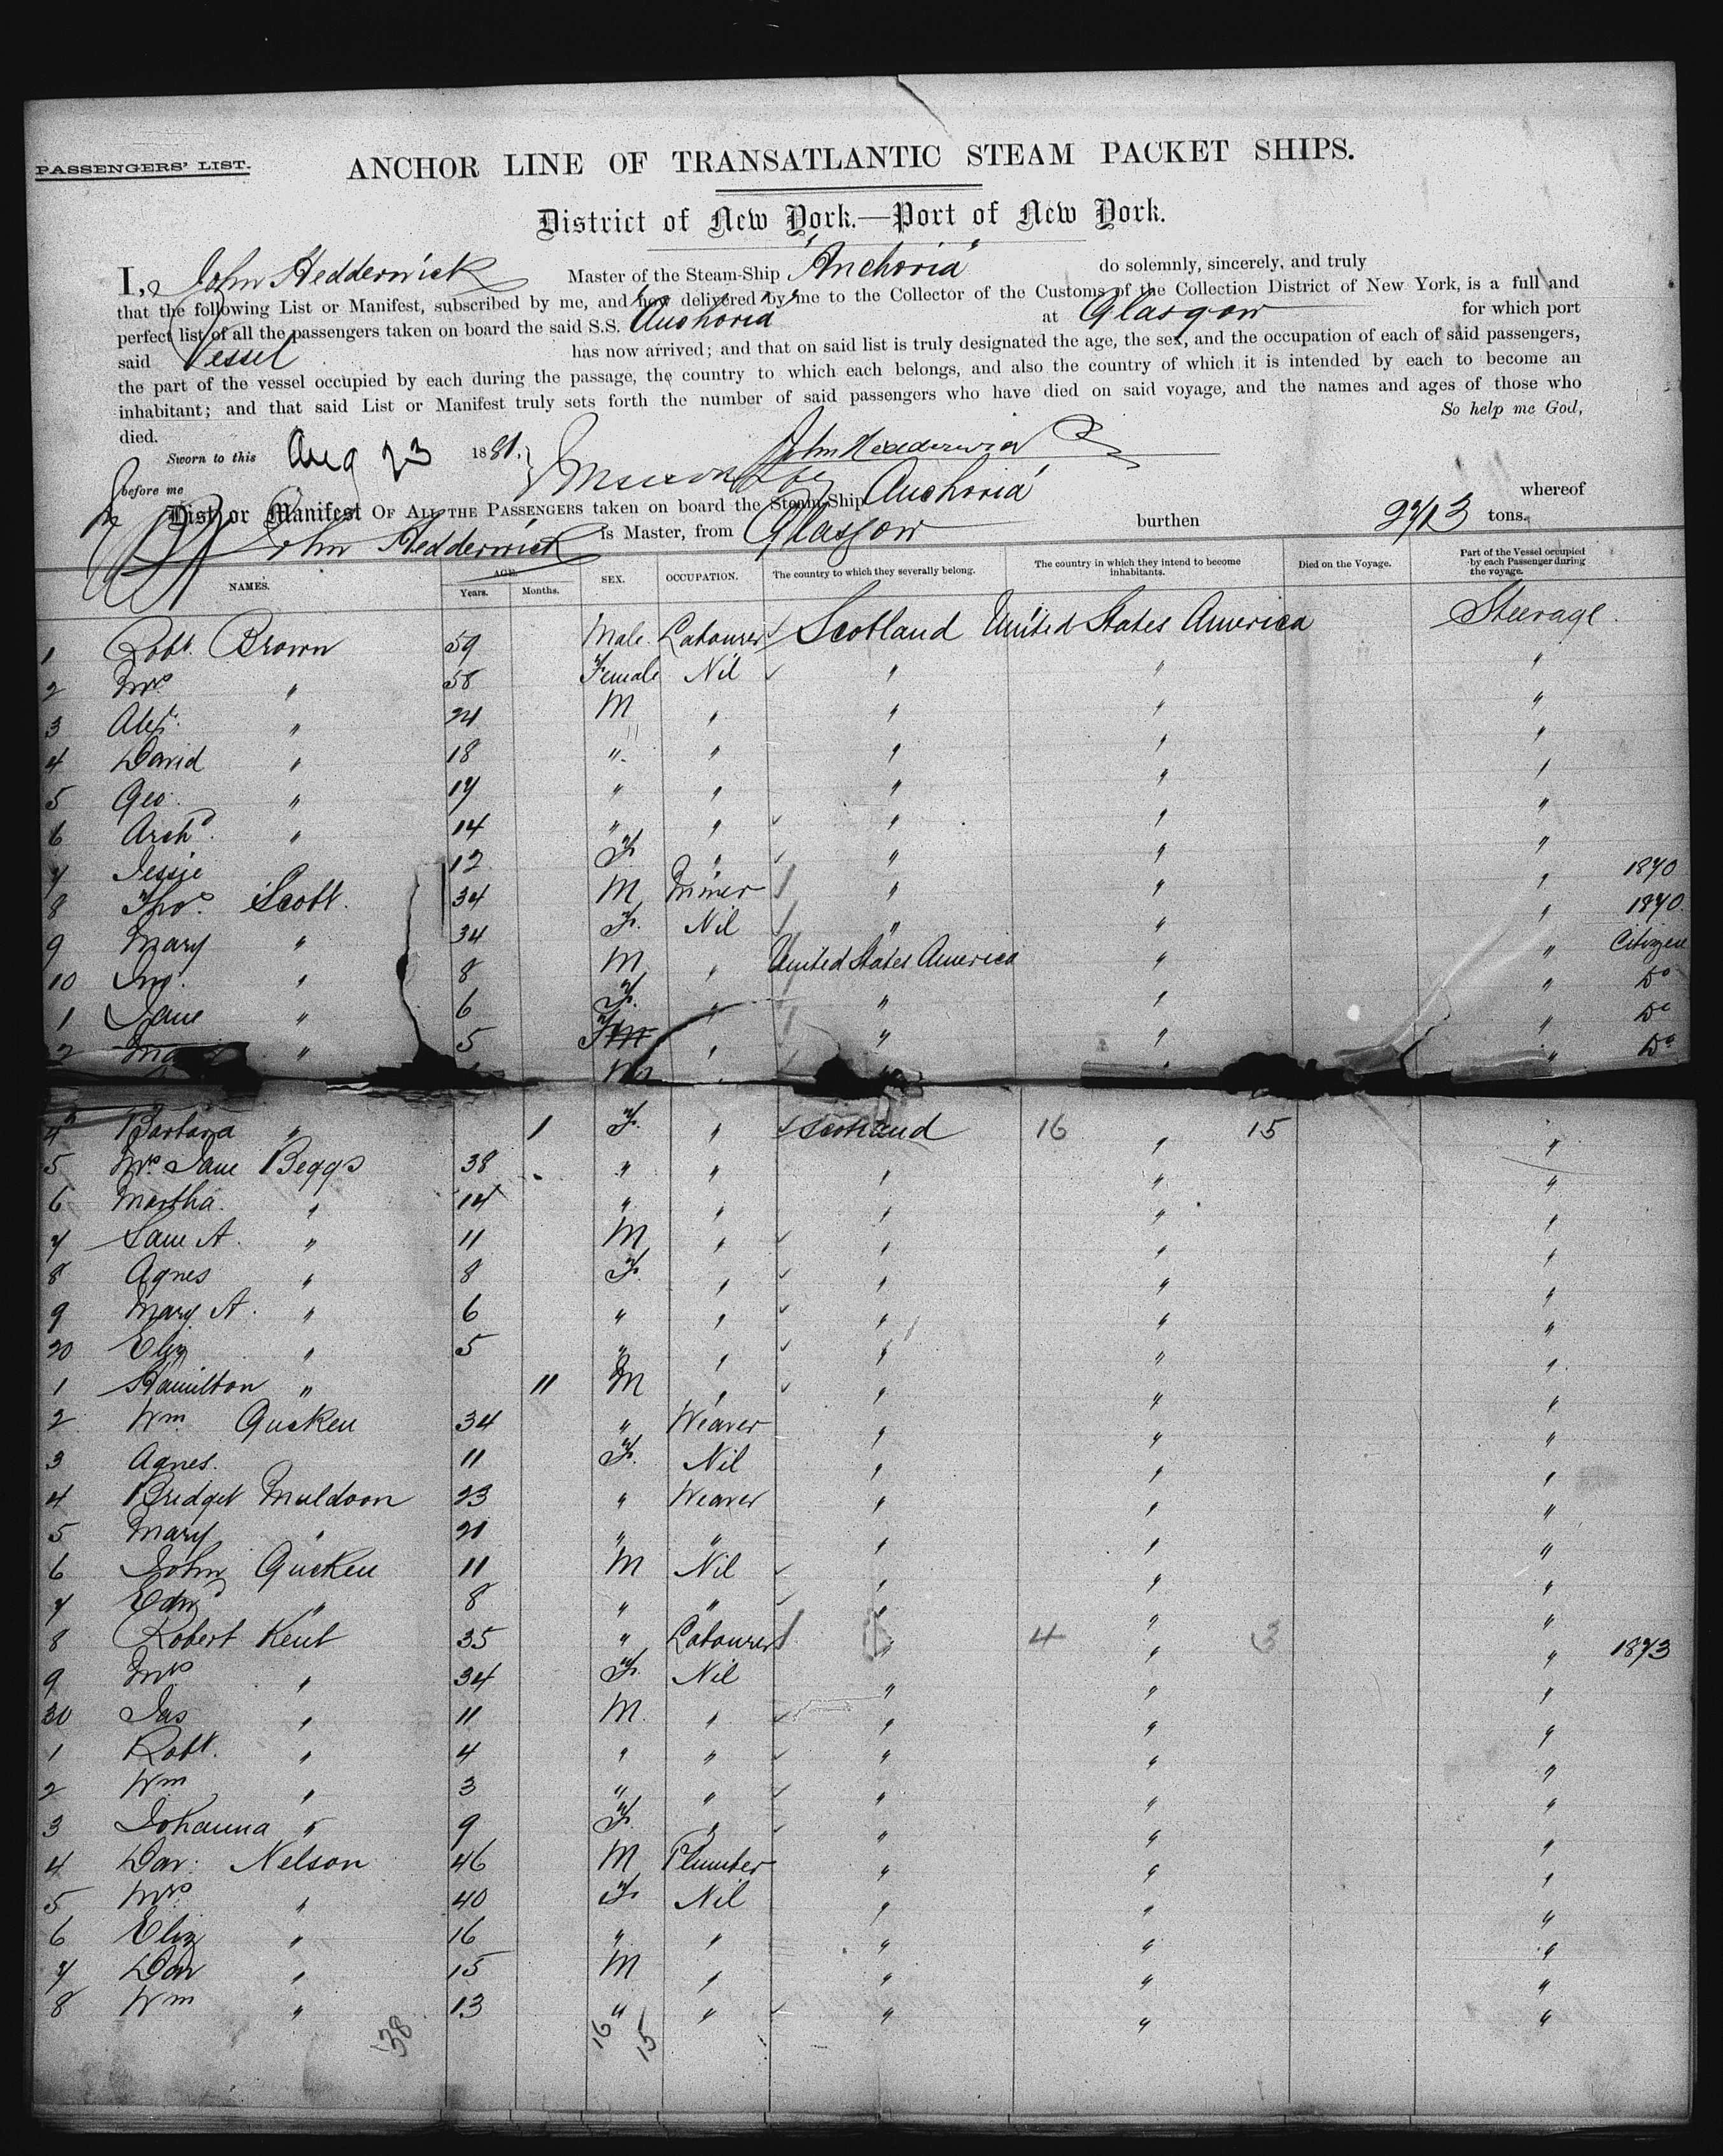 PASSENGERS' LIST.
ANCHOR LINE OF TRANSATLANTIC STEAM PACKET SHIPS.
District of New York.—Port of New York.
I, John Hedderwick Master of the Steam-Ship "Anchoria" do solemnly, sincerely, and truly
that the following List or Manifest, subscribed by me, and now delivered by me to the Collector of the Customs of the Collection District of New York, is a full and
perfect list of all the passengers taken on board the said S.S. "Anchoria" at Glasgow for which port
said Vessel has now arrived; and that on said list is truly designated the age, the sex, and the occupation of each of said passengers,
the part of the vessel occupied by each during the passage, the country to which each belongs, and also the country of which it is intended by each to become an
inhabitant; and that said List or Manifest truly sets forth the number of said passengers who have died on said voyage, and the names and ages of those who
died. So help me God,
Sworn to this Aug 23 1881, John Hedderwick
before me
List or Manifest OF ALL THE PASSENGERS taken on board the Steam-Ship Anchoria whereof
John Hedderwick is Master, from Glasgow burthen 2713 tons.
NAMES. AGE. Years. Months. SEX. OCCUPATION. The country to which they severally belong. The country in which they intend to become inhabitants. Died on the Voyage. Part of the Vessel occupied by each Passenger during the voyage.
1 Robt. Brown 59 Male. Labourer Scotland United States America Steerage.
2 Mrs " 58 Female Nil " " "
3 Alexr. " 24 M " " " "
4 David " 18 " " " " "
5 Geo. " 17 " " " " "
6 Archd. " 14 " " " " "
7 Jessie " 12 F. " " " "
8 Thos. Scott. 34 M Miner " " " 1870
9 Mary " 34 F. Nil " " " 1870.
10 Jno. " 8 M " United States America " " Citizen
1 Jane " 6 F. " " " " Do
2 " 5 F " " " " Do
M " " " " Do
4 Barbara " 1 F. " Scotland 16 " 15 "
5 Mrs. Jane Beggs 38 " " " " "
6 Martha. " 14 " " " " "
7 Sam A. " 11 M " " " "
8 Agnes " 8 F. " " " "
9 Mary A. " 6 " " " " "
20 Eliz " 5 " " " " "
1 Hamilton " 11 M " " " "
2 Wm. Qucken 34 " Weaver " " "
3 Agnes. 11 F. Nil " " "
4 Bridget Muldoon 23 " Weaver " " "
5 Mary " 21 " " " " "
6 John Qucken 11 M Nil " " "
7 Edwd " 8 " " " " "
8 Robert Kent 35 " Labourer " 4 " 3 " 1873
9 Mrs " 34 F. Nil " " "
30 Jas " 11 M. " " " "
1 Robt. " 4 " " " " "
2 Wm " 3 " " " " "
3 Johanna " 9 F. " " " "
4 Dav: Nelson 46 M Plumber " " "
5 Mrs " 40 F. Nil " " "
6 Eliz " 16 " " " " "
7 Dav " 15 M " " " "
8 Wm " 13 " " " " "
38 16 15